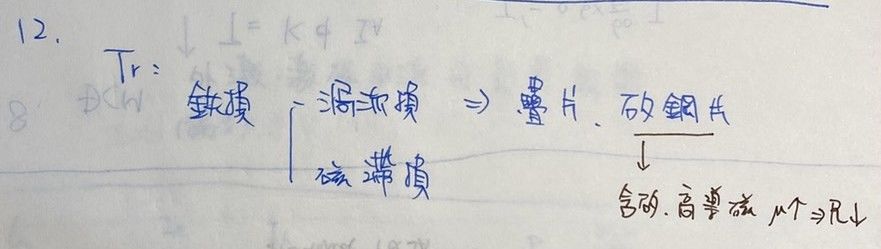 12.
Tr:
鉄損 - 渦流損 ⇒ 疊片、矽鋼片
磁滯損
↓
含矽、高導磁 μ↑⇒R↓